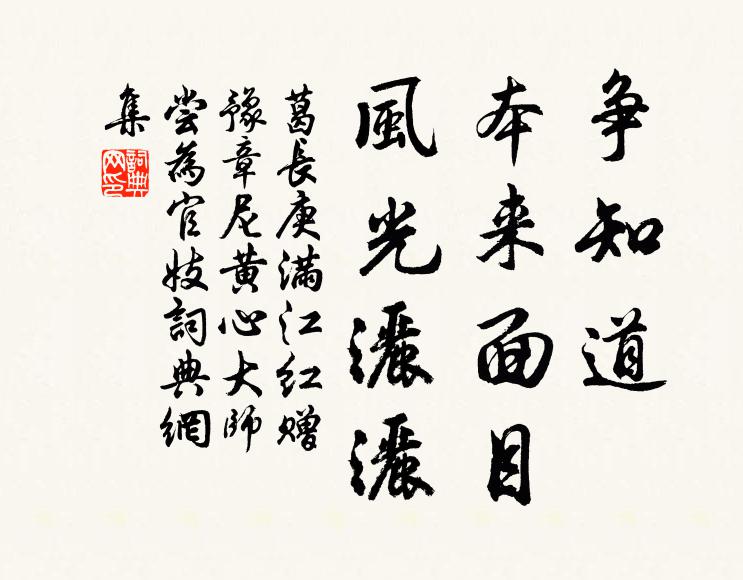 争知道
本来面目
風光灑灑
葛長庚滿江红赠
豫章尼黄心大師
嘗為官妓詞典網
集
詞典网印